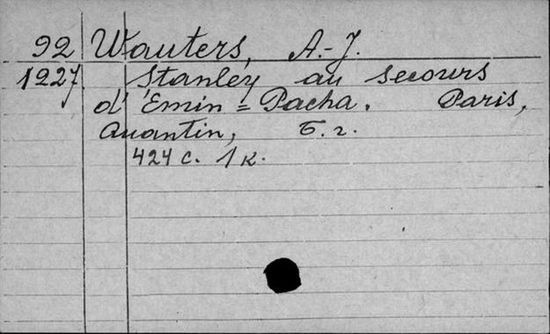 92 Wauters, A.-J.
1927. Stanley au secours
d'Emin=Pacha. Paris,
Quantin, Б.г.
424 с. 1 к.